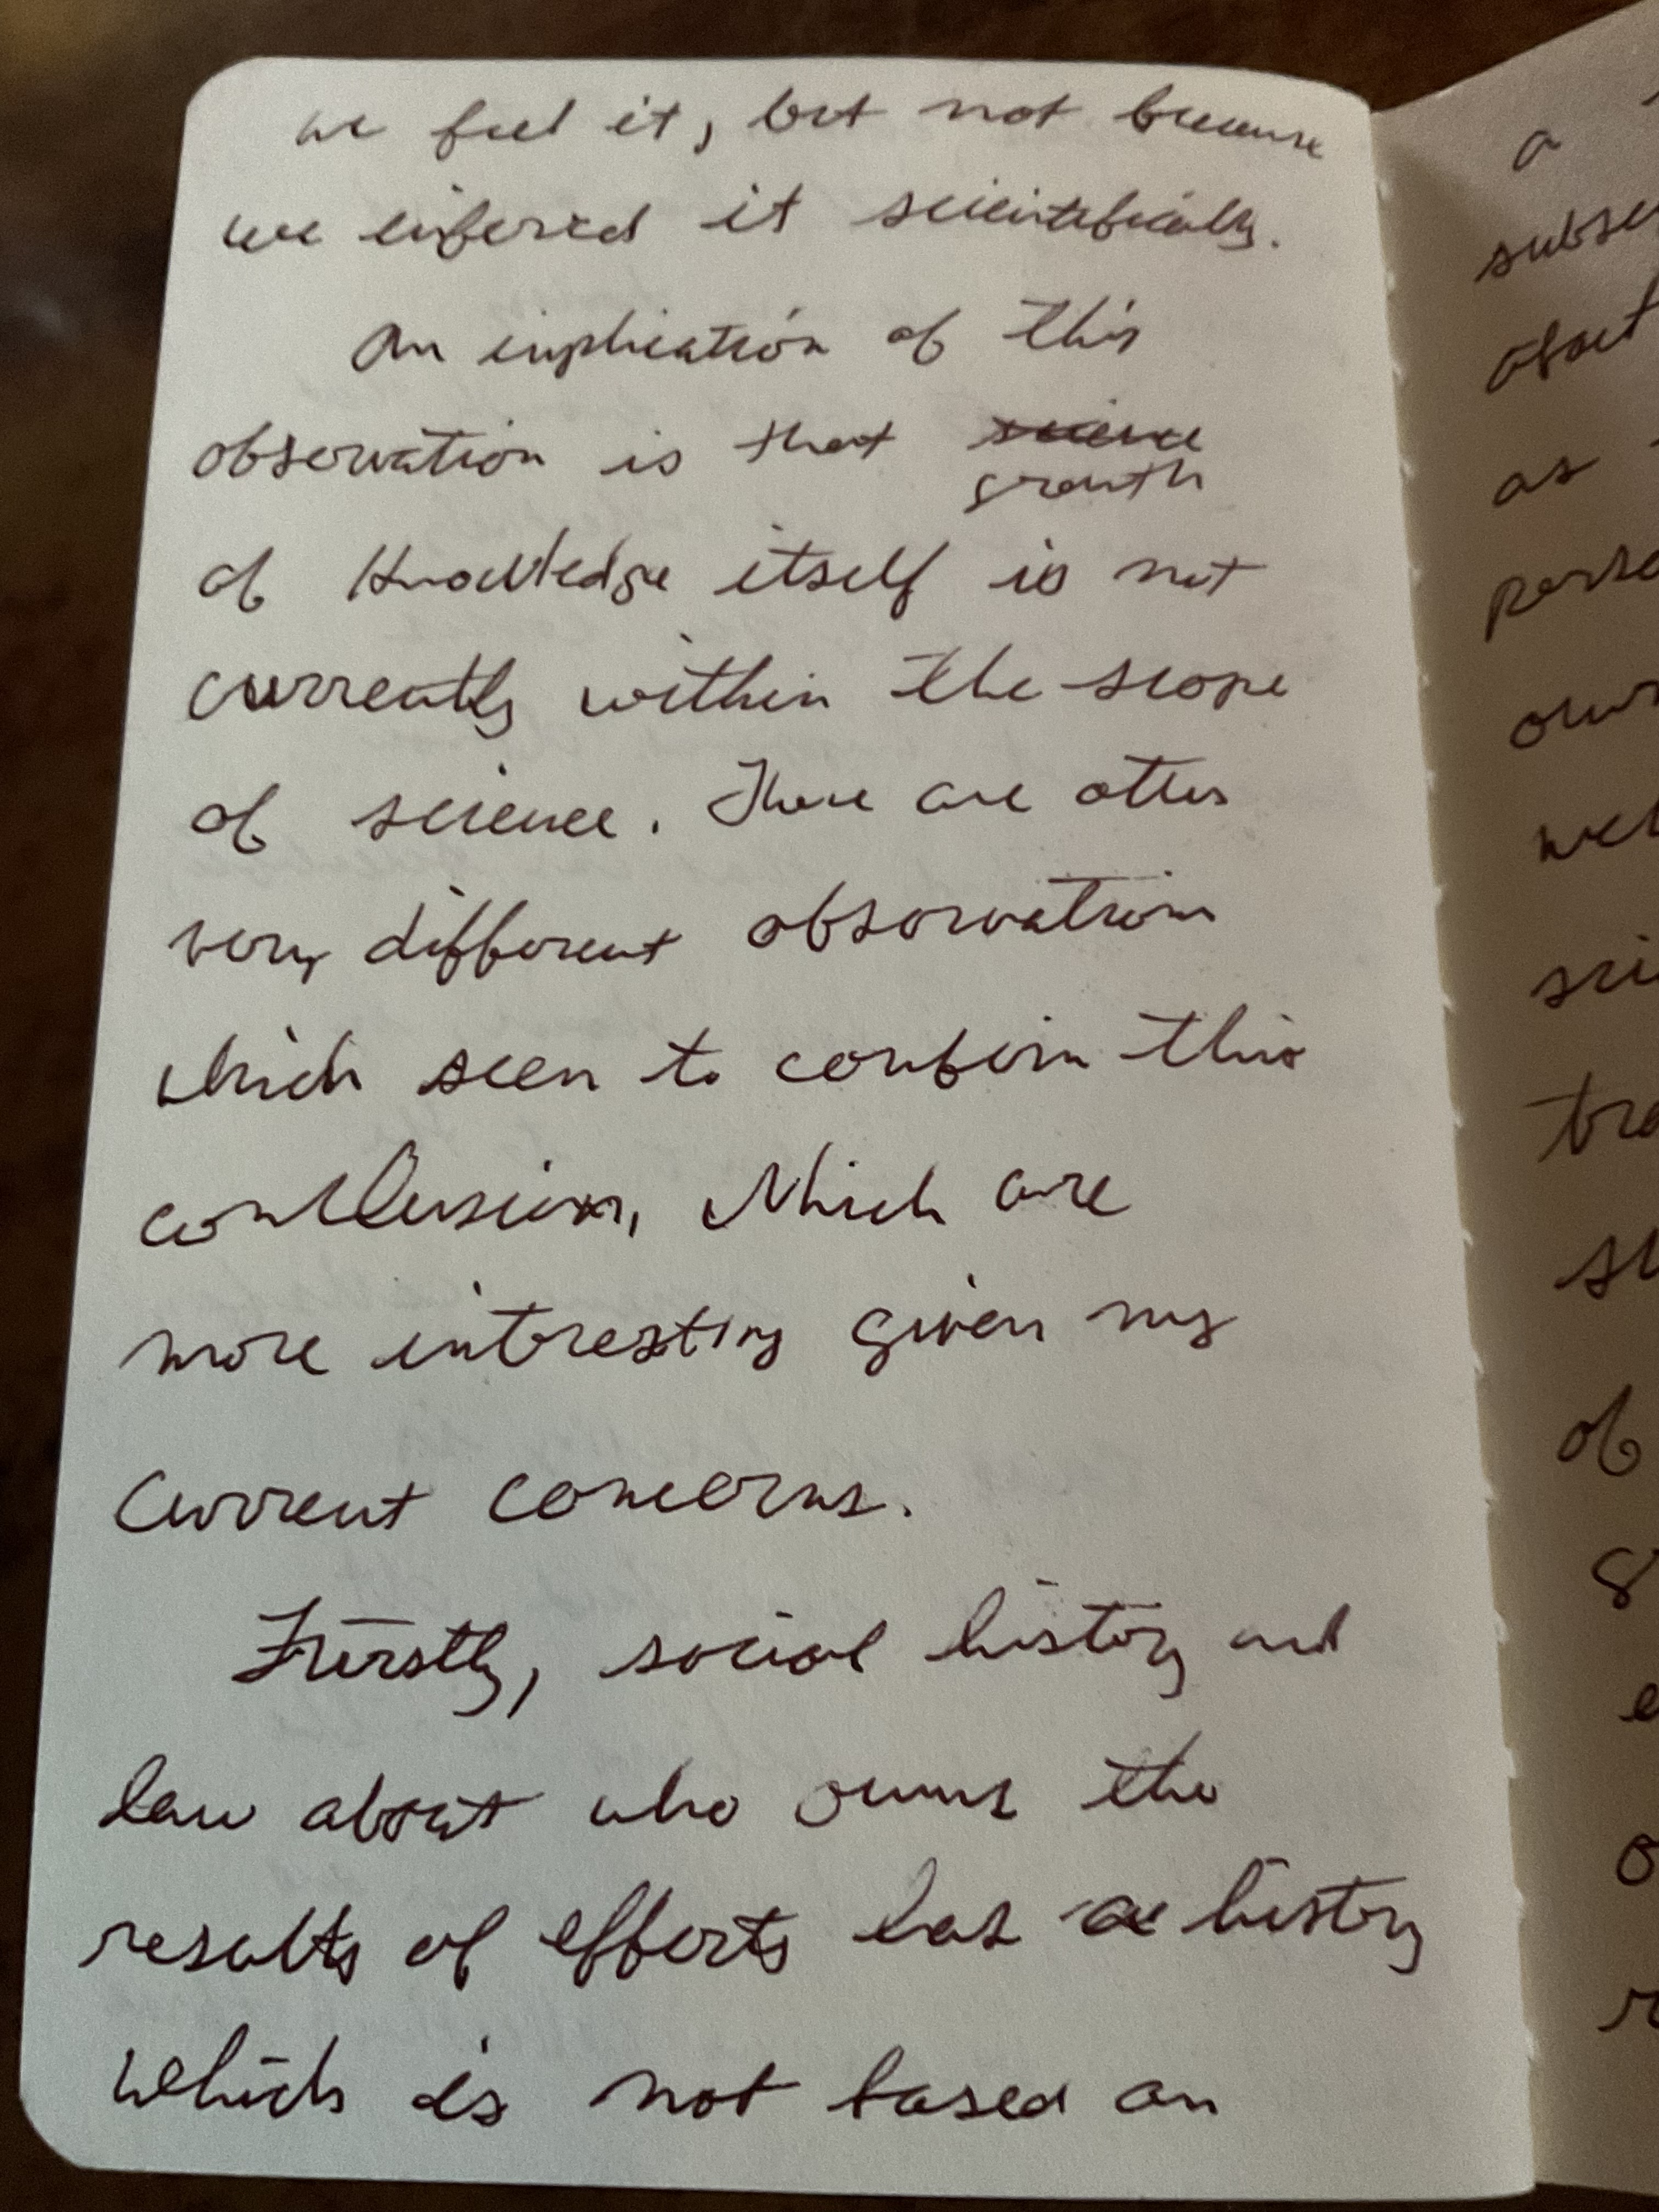 we feel it, but not because
we infered it scientifically.
An implication of this
observation is that science
growth
of knowledge itself is not
currently within the scope
of science. There are other
very different observations
which seem to confirm this
conclusion, which are
more interesting given my
current concerns.
Firstly, social history and
law about who owns the
results of efforts has a history
which is not based on
a
subse
about
as
perso
own
wel
sci
tra
su
of
g
e
o
r